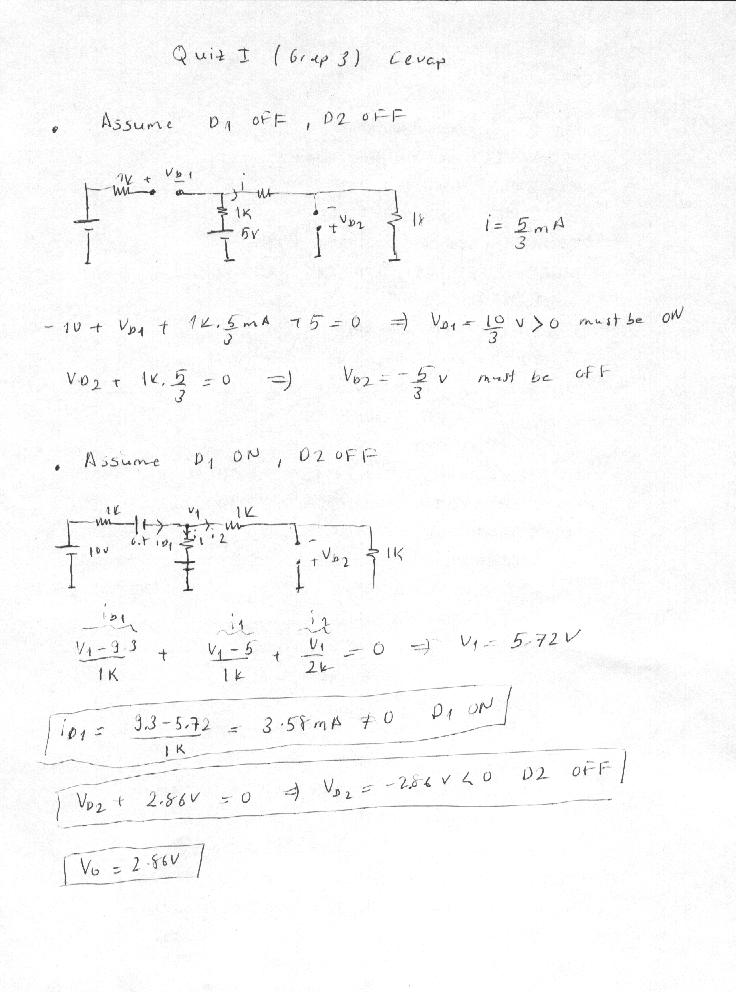 Quiz I (Grup 3) Cevap
• Assume D1 OFF, D2 OFF
+ VD1 - i
1K
5V
- + VD2
1K
i = 5/3 mA
-10 + VD1 + 1K.5/3 mA + 5 = 0 => VD1 = 10/3 V > 0 must be ON
VD2 + 1K.5/3 = 0 => VD2 = -5/3 V must be OFF
• Assume D1 ON, D2 OFF
1K V1 1K
10V iD1 i1 i2
- + VD2
1K
iD1 i1 i2
V1-9.3/1K + V1-5/1K + V1/2K = 0 => V1 = 5.72V
iD1 = 9.3-5.72/1K = 3.58mA ≠ 0 D1 ON
VD2 + 2.86V = 0 => VD2 = -2.86V < 0 D2 OFF
Vo = 2.86V